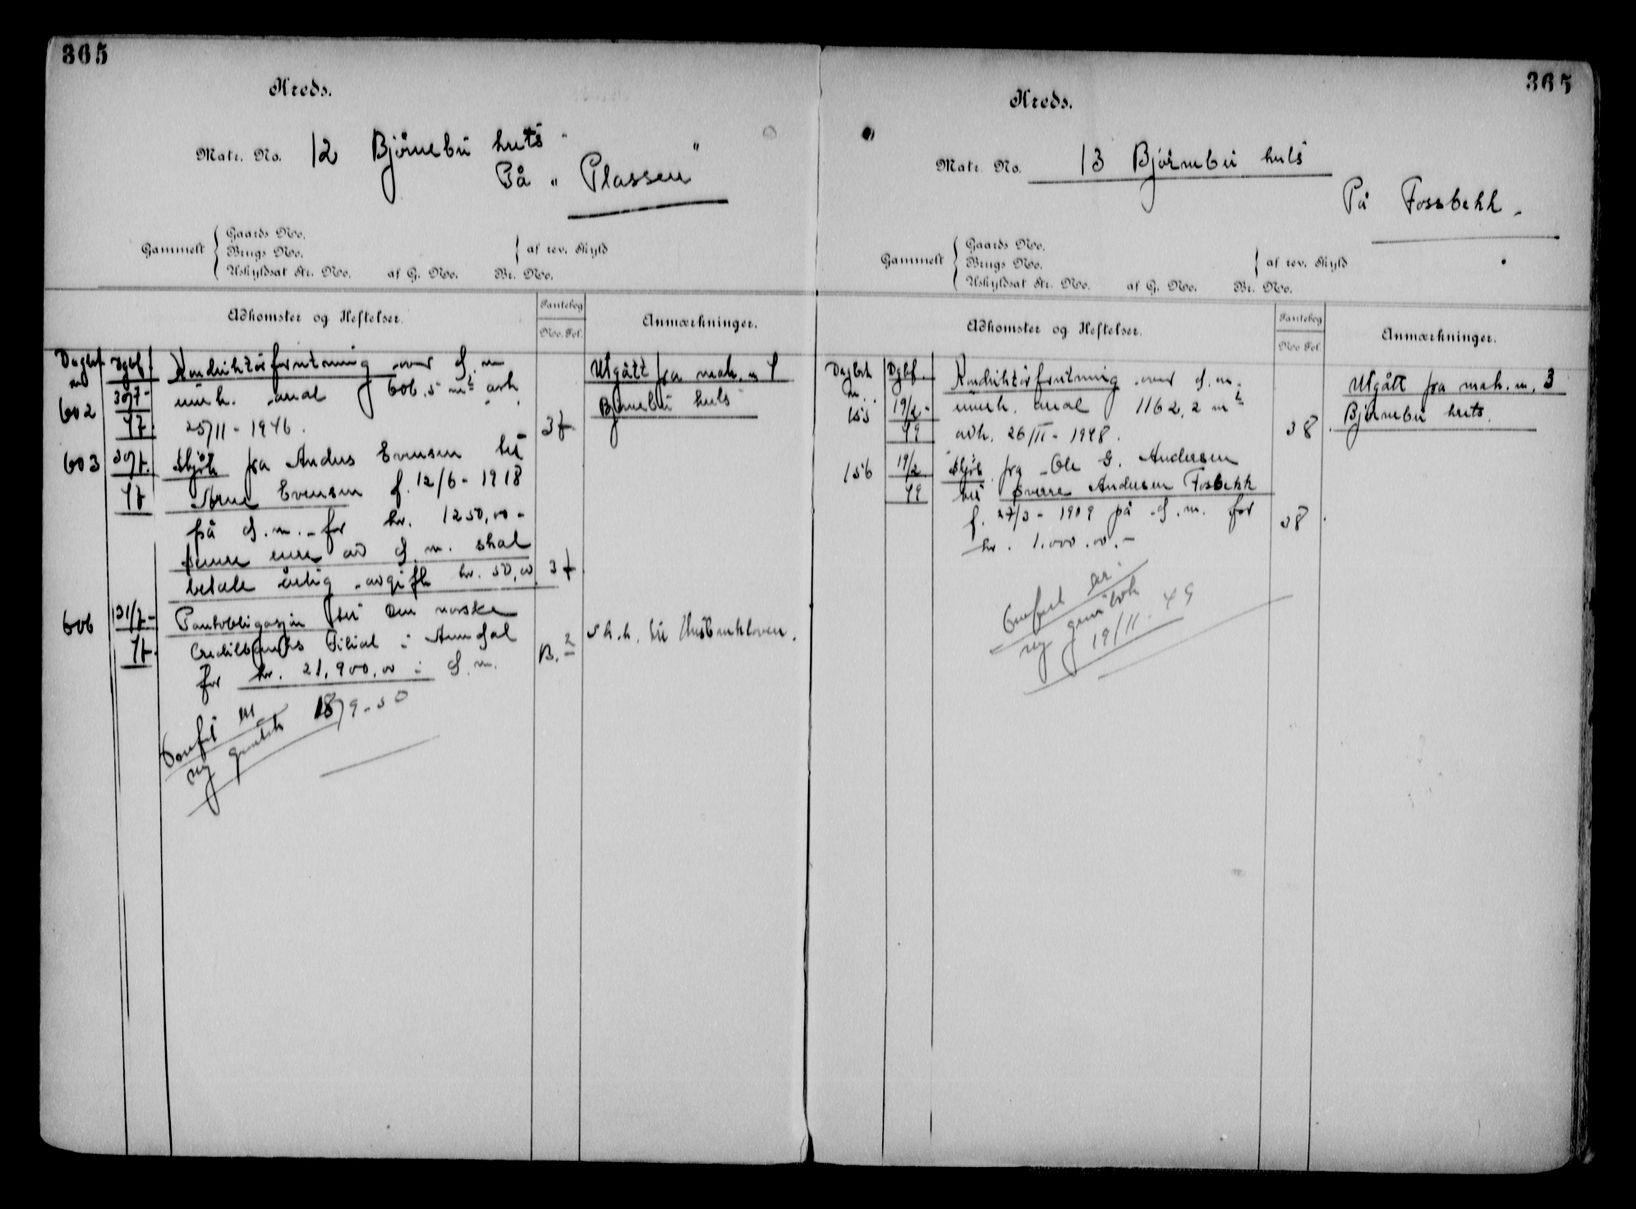 365
Kreds.
Matr. No. 12 Bjørnebu huts
På " Plassen "
Gammelt
Gaards No.
Brugs No.
Uskyldsat Str. No. af G. No. Br. No.
af rev. Skyld
Adkomster og Heftelser.
Pantebog
No. Fol.
Anmærkninger.
Dagbf Dgbf. Konduktørforretning over d. m.
602 30/7- 47 areal 606.5 m² avh.
25/11 - 1946. 37
Utgått fra mak. n
Bjørnebu huts
603 30/7- 47 Skjøte fra Anders Evensen til
Arne Evensen f. 12/6 - 1918
på d. m. for kr. 1250,00 -
d. m. skal
betale årlig avgift kr. 50,00 37
606 131/7- 47 Pantobligasjon til Den norske
Creditbanks Filial i Arendal
for kr. 21,900,00 i d. m.
B. 2
til Husbankloven.
ny grunnbok 18/9-50
365
Kreds.
Matr. No. 13 Bjørnebu huts
På Fossbekk.
Gammelt
Gaards No.
Brugs No.
Uskyldsat Str. No. af G. No. Br. No.
af rev. Skyld
Adkomster og Heftelser.
Pantebog
No. Fol.
Anmærkninger.
Dagbok Dgbf. Konduktørforretning over d. m.
155 19/2- 49 areal 1162,2 m²
avh. 26/11 - 1948. 38
Utgått fra mak. n. 3
Bjørnebu huts.
156 19/2 49 Skjøte fra Ole G. Andersen
til Sverre Andersen Fosbekk
f. 27/3 - 1909 på d. m. for
kr. 1.000.00.- 38
ny grunnbok
19/11. 49